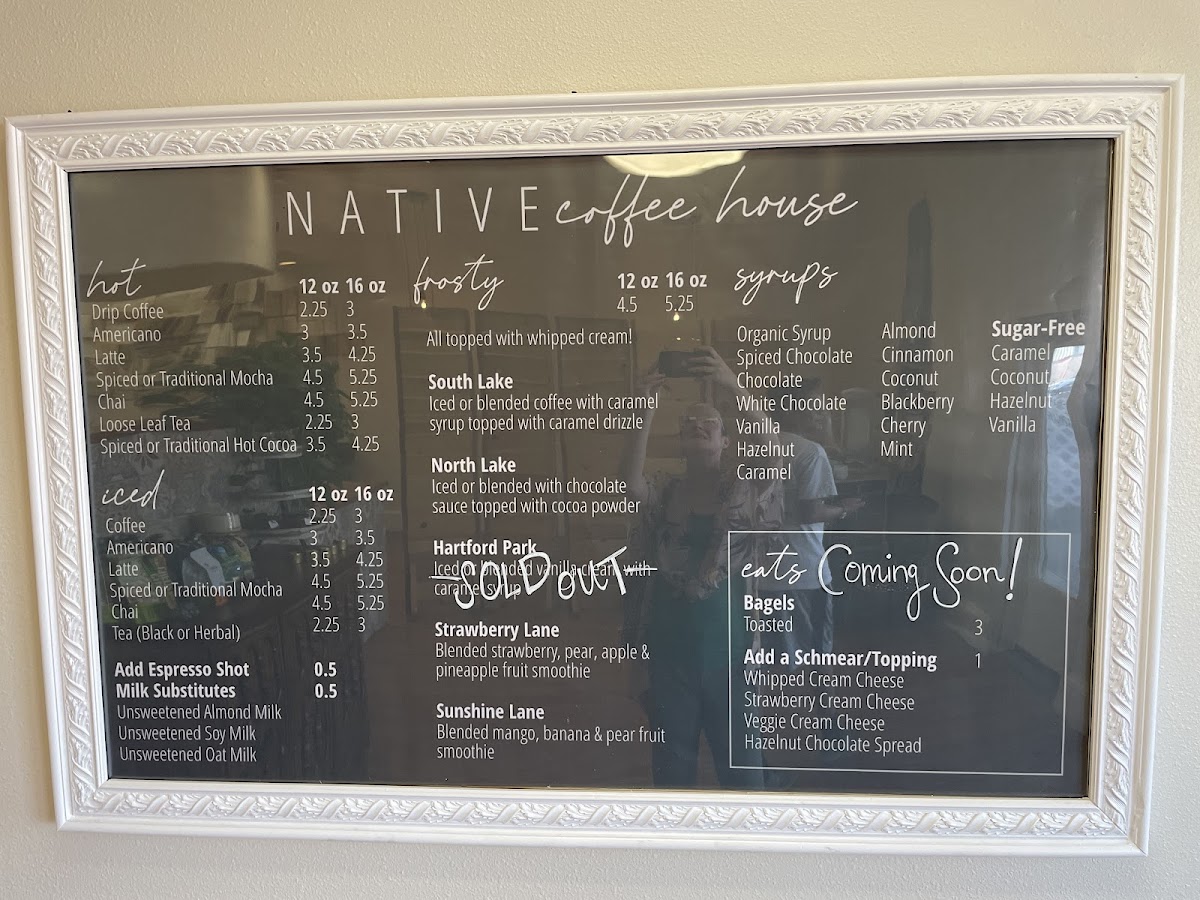 NATIVE coffee house
hot
12 oz 16 oz
Drip Coffee 2.25 3
Americano 3 3.5
Latte 3.5 4.25
Spiced or Traditional Mocha 4.5 5.25
Chai 4.5 5.25
Loose Leaf Tea 2.25 3
Spiced or Traditional Hot Cocoa 3.5 4.25
iced
12 oz 16 oz
Coffee 2.25 3
Americano 3 3.5
Latte 3.5 4.25
Spiced or Traditional Mocha 4.5 5.25
Chai 4.5 5.25
Tea (Black or Herbal) 2.25 3
Add Espresso Shot 0.5
Milk Substitutes 0.5
Unsweetened Almond Milk
Unsweetened Soy Milk
Unsweetened Oat Milk
frosty
12 oz 16 oz
4.5 5.25
All topped with whipped cream!
South Lake
Iced or blended coffee with caramel
syrup topped with caramel drizzle
North Lake
Iced or blended with chocolate
sauce topped with cocoa powder
Hartford Park
Iced or blended vanilla cream with
caramel syrup
SOLD OUT
Strawberry Lane
Blended strawberry, pear, apple &
pineapple fruit smoothie
Sunshine Lane
Blended mango, banana & pear fruit
smoothie
syrups
Organic Syrup
Spiced Chocolate
Chocolate
White Chocolate
Vanilla
Hazelnut
Caramel
Almond
Cinnamon
Coconut
Blackberry
Cherry
Mint
Sugar-Free
Caramel
Coconut
Hazelnut
Vanilla
eats Coming Soon!
Bagels
Toasted 3
Add a Schmear/Topping 1
Whipped Cream Cheese
Strawberry Cream Cheese
Veggie Cream Cheese
Hazelnut Chocolate Spread